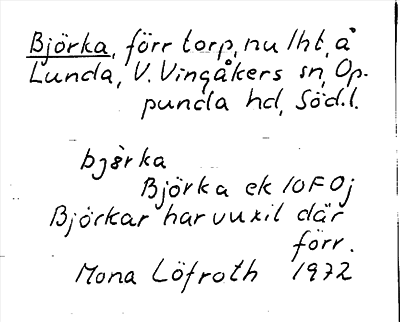 Björka, förr torp, nu lht, å
Lunda, V. Vingåkers sn, Op-
punda hd, Södl.
bjèrka
Björka ek 10F 0j
Björkar har vuxit där
förr.
Mona Löfroth 1972